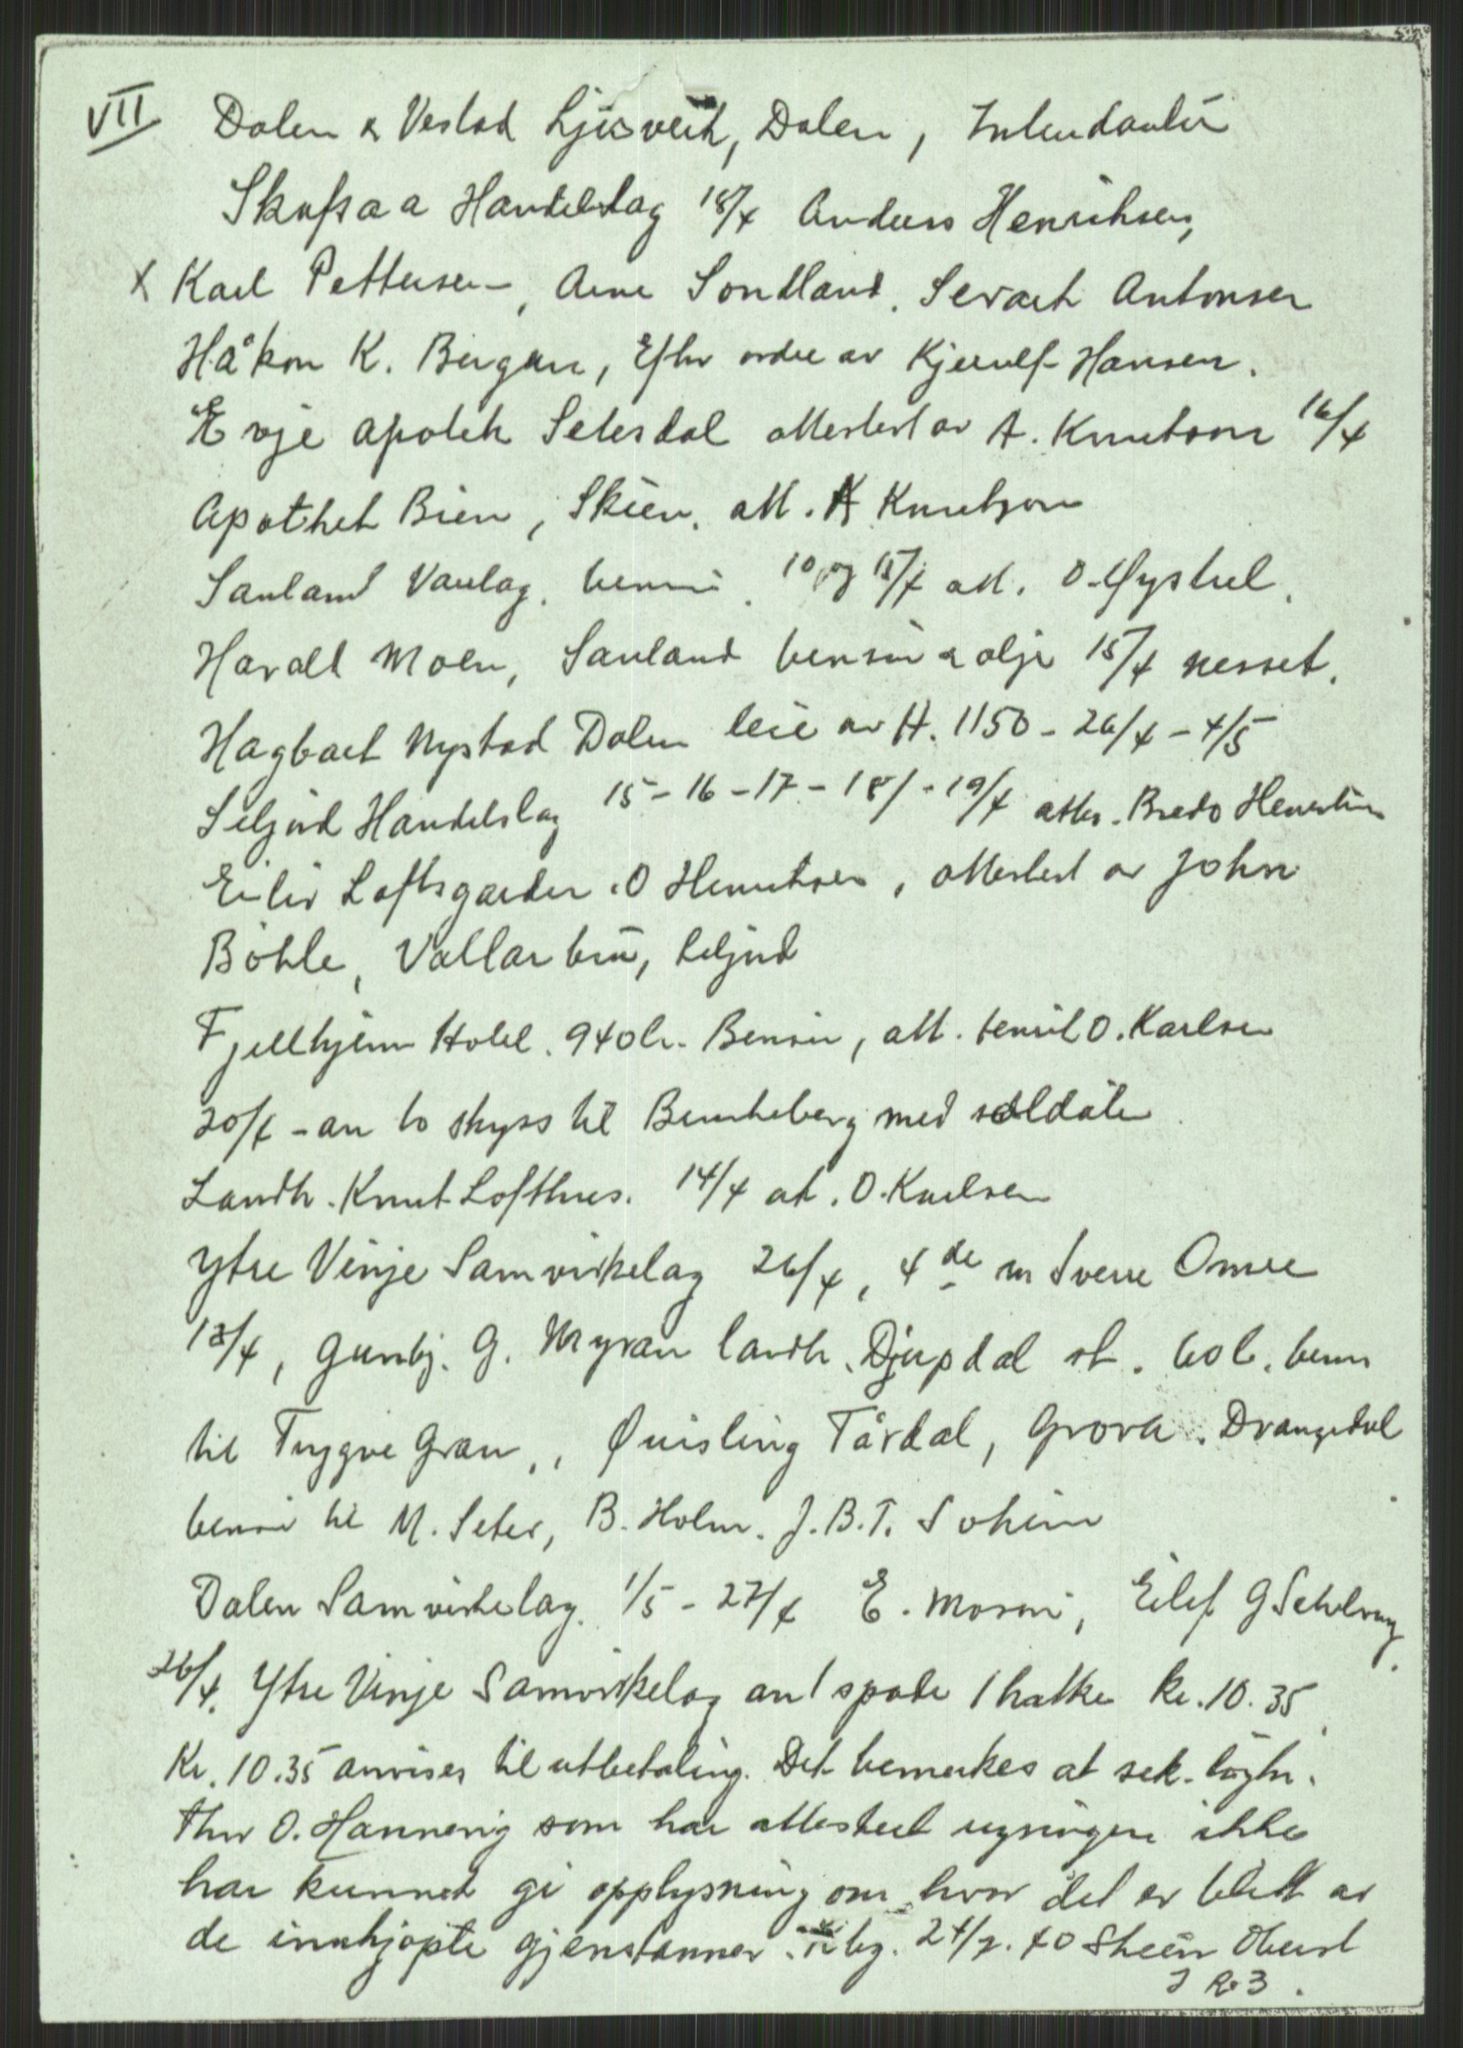 VII Dalen & Vestad Ljosverk, Dalen, Intendantür
Skafsaa Handelslag 18/4 Anders Henriksen,
x Karl Pettersen, Arne Sondland, Antonsen
Håkon K. Bergan, Efter ordre av Kjerulf-Hansen.
Evje apotek Setesdal attestert av A. Knutson 16/4
Apothek Bien, Skien, att. A Knutson
Sauland Varelag, bensin. 10 og 15/4 att. O. Øystul.
Harald Moen, Sauland bensin & olje 15/4 Nesset.
Hagbart Nystad Dalen leie av H. 1150 - 26/4 - 4/5
Seljord Handelslag 15 - 16 - 17 - 18/ - 19/4 attes. Bredo
Eiliv Loftsgarden. O Henriksen, attestert av John
Böhle, Vallar bru, Seljord
Fjellhjem Hotel. 940 lr. Bensin, att. O. Karlsen
20/4 - an to skyss til Binneberg med soldater
Landh. Knut Lofthus. 14/4 at. O. Karlsen
Ytre Vinje Samvirkelag 26/4, 4de m Sverre Omre
13/4, Gunbj. G. Myran landh. Djupdal st. 60 l. bensin
til Tryggve Gran, Quisling Tårdal, Grova. Drangedal
bensin til M. Seter, B. Holm. J.B.T. Soheim
Dalen Samvirkelag. 1/5 - 27/4 E. Moson, Eilef G
26/4. Ytre Vinje Samvirkelag an 1 spade 1 hakke kr. 10.35.
Kr. 10.35 anvises til utbetaling. Det bemerkes at sek. løytn.
Thor O. Hannevig som har attestert regningen ikke
har kunnet gi opplysning om hvor det er blitt av
de innkjøpte gjenstanner. 24/7. 40 Steen Oberst
I R 3.